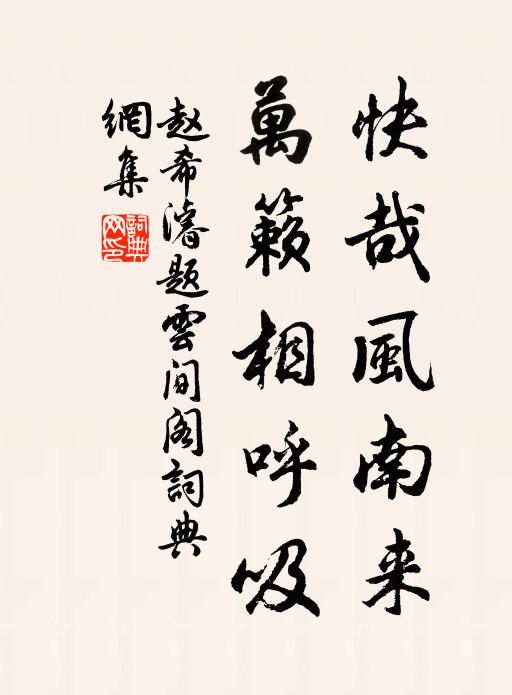 快哉風南来
萬籟相呼吸
赵希濬题雲间阁詞典
網集
詞典网印